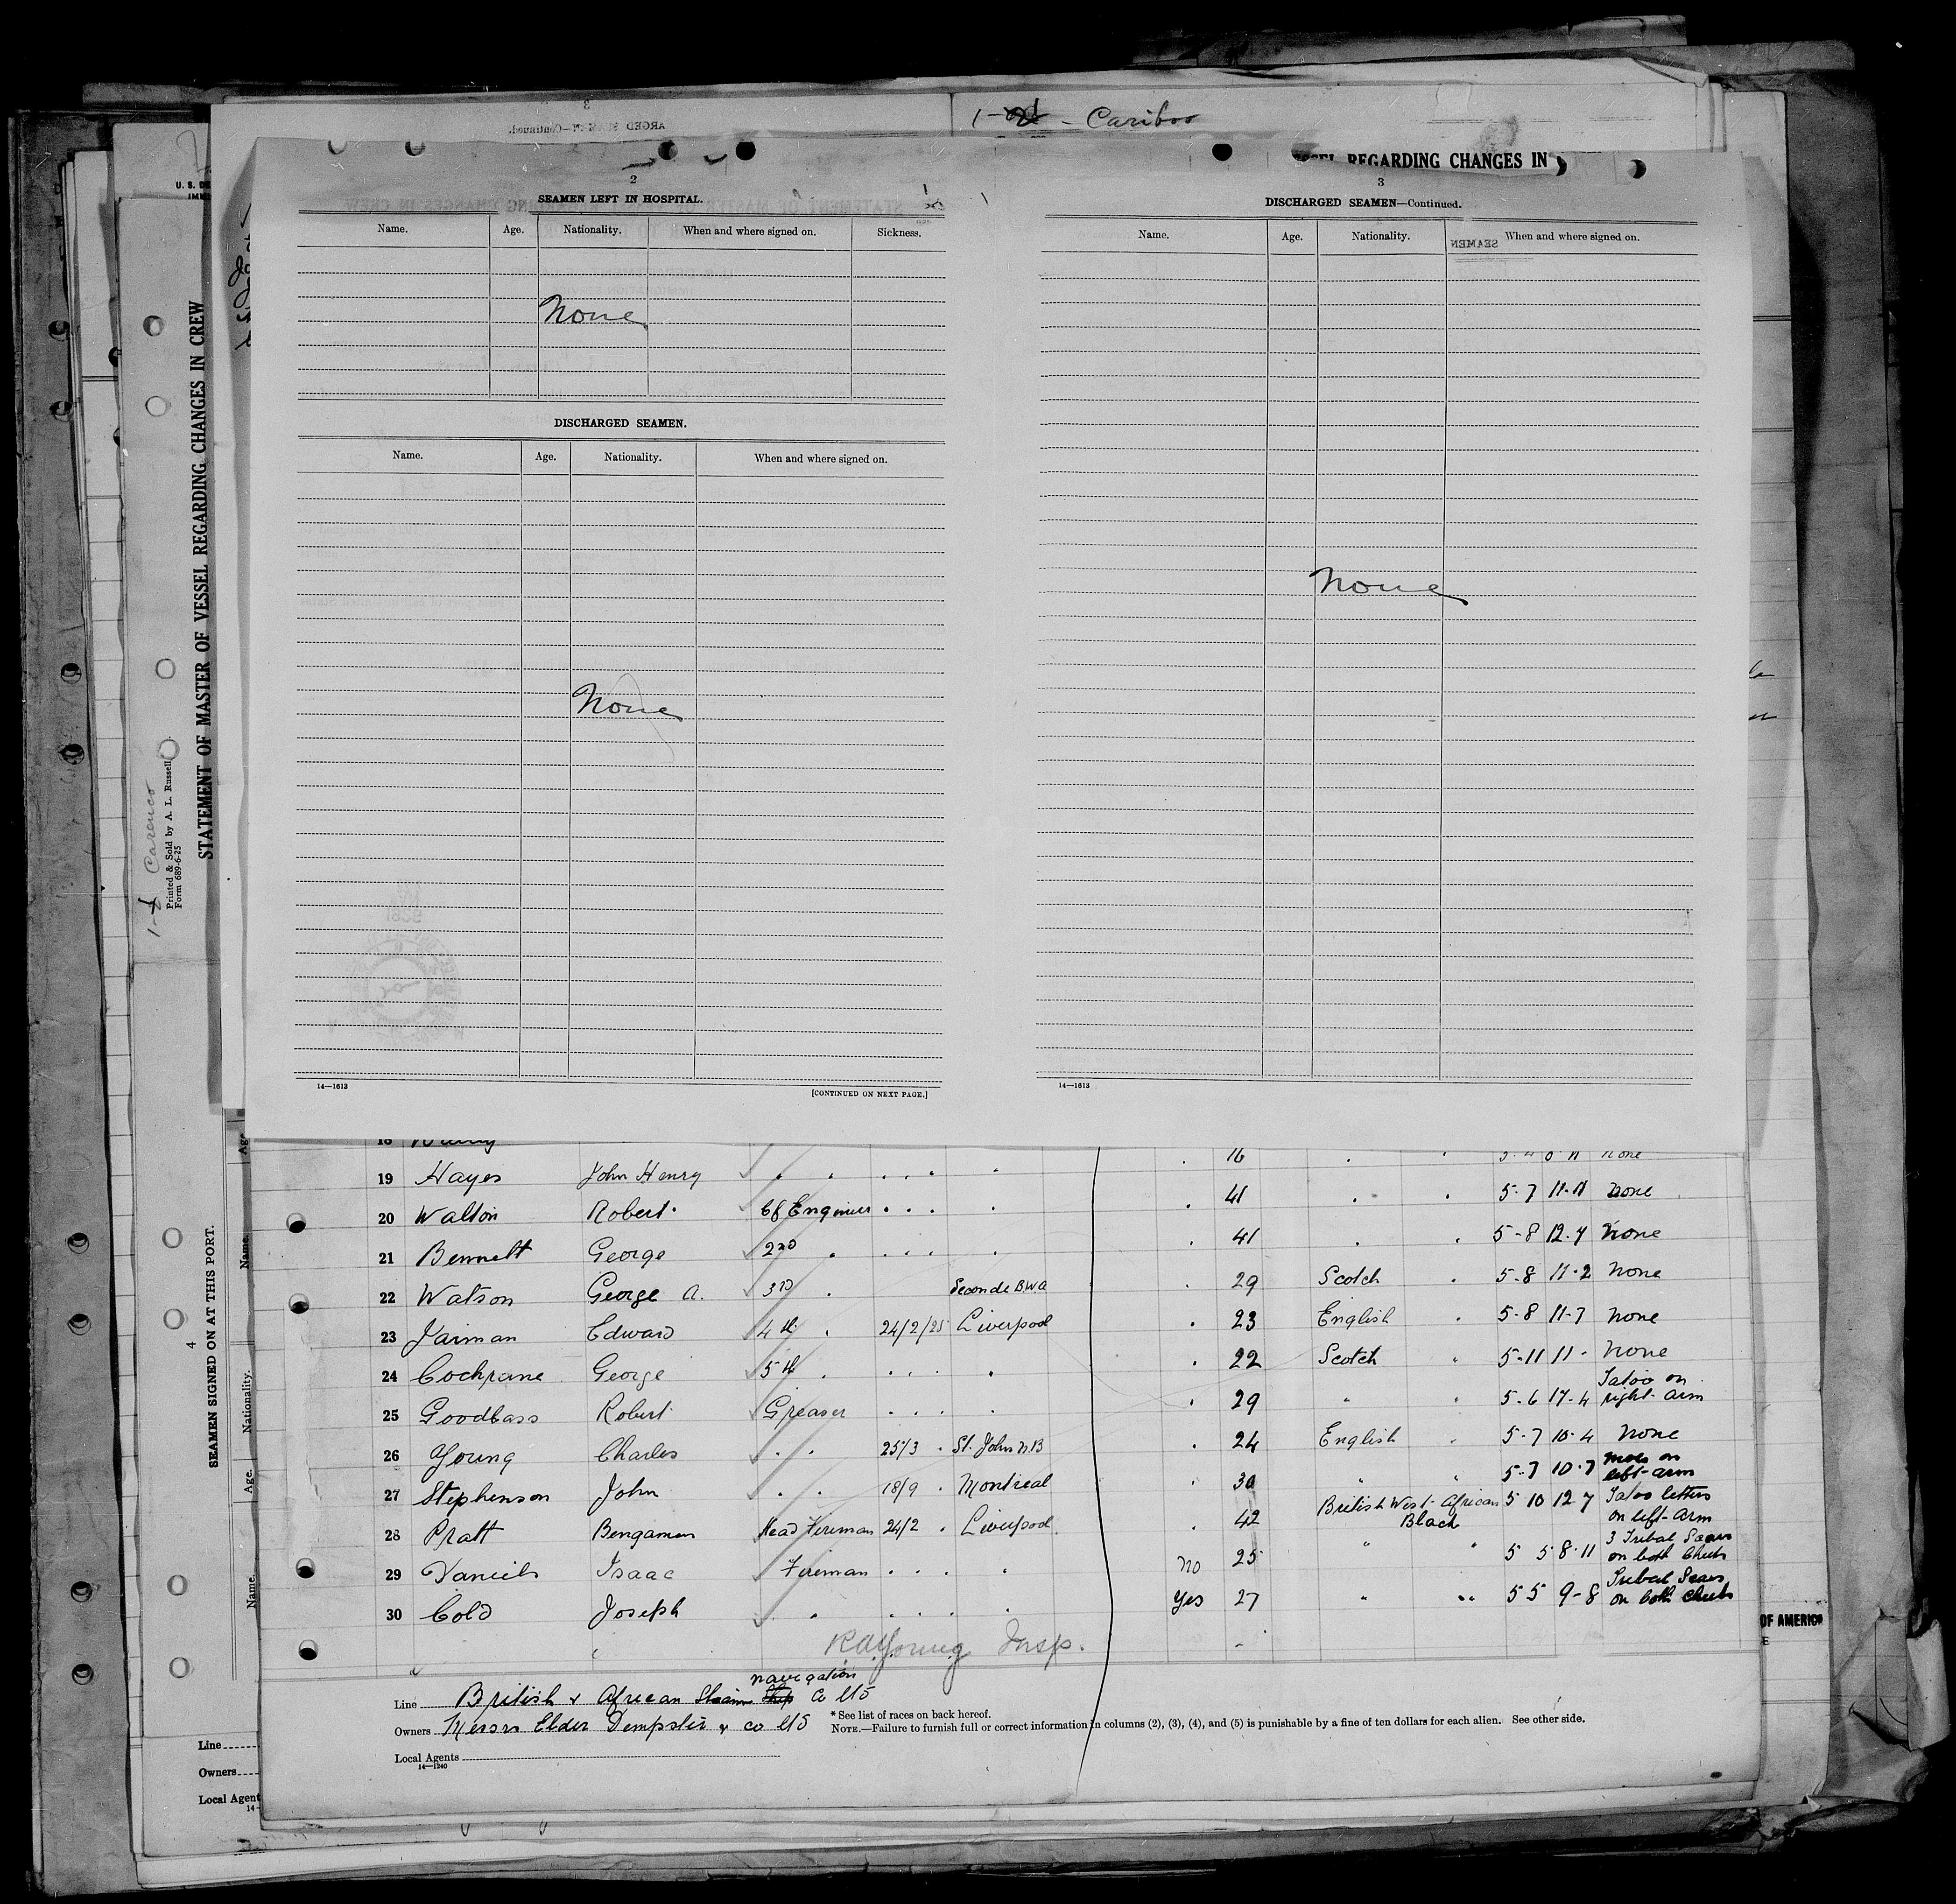 1- - Cariboo
REGARDING CHANGES IN
2
SEAMEN LEFT IN HOSPITAL.
Name. Age. Nationality. When and where signed on. Sickness.
None
DISCHARGED SEAMEN.
Name. Age. Nationality. When and where signed on.
None
14—1613
[CONTINUED ON NEXT PAGE.]
3
DISCHARGED SEAMEN—Continued.
Name. Age. Nationality. When and where signed on.
None
14—1613
18 16 None
19 Hayes John Henry 41 5-7 11-11 None
20 Walton Robert Cf Engineer 41 5-8 12-7 None
21 Bennett George 2nd 29 Scotch 5-8 11-2 None
22 Watson George A. 3rd Seconde BWA 23 English 5-8 11-7 None
23 Jarman Edward 4th 24/2/25 Liverpool 22 Scotch 5-11 11- None
24 Cochrane George 5th 29 " 5-6 17-4 Tatoo on right arm
25 Goodbass Robert Greaser 24 English 5-7 10-4 None
26 Young Charles 25/3 St. John N.B 30 " 5-7 10-7 mole on left arm
27 Stephenson John 18/9 Montreal 42 British West African Black 5 10 12 7 Tatoo letters on left arm
28 Pratt Bengamen Head Fireman 24/2 Liverpool No 25 " 5 5 8-11 3 Tribal Scars on both Cheeks
29 Daniels Isaac Fireman Yes 27 " 5 5 9-8 Tribal Scars on both cheeks
30 Cold Joseph
R A Young Insp.
Line British & African Steam Ship navigation Co Ltd
Owners Messrs Elder Dempster & co Ltd
Local Agents
14—1240
* See list of races on back hereof.
NOTE.—Failure to furnish full or correct information in columns (2), (3), (4), and (5) is punishable by a fine of ten dollars for each alien. See other side.
OF AMERICA
U. S. DE
IMMI
STATEMENT OF MASTER OF VESSEL REGARDING CHANGES IN CREW
1- Carenco
Printed & Sold by A. L. Russell
Form 689-6-25
4
SEAMEN SIGNED ON AT THIS PORT.
Name. Age. Nationality. Name. Age
Line
Owners
Local Agent
14-